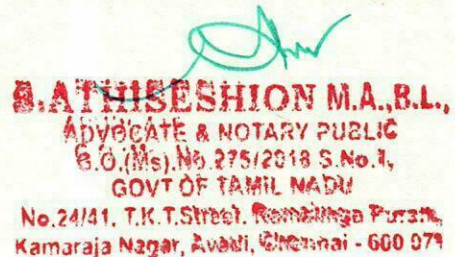 ATHISESHION M.A.,B.L.,
ADVOCATE & NOTARY PUBLIC
G.O.(Ms).No.275/2018 S.No.1,
GOVT OF TAMIL NADU
No.24/41, T.K.T.Street, Ramalinga Puram,
Kamaraja Nagar, Avadi, Chennai - 600 071